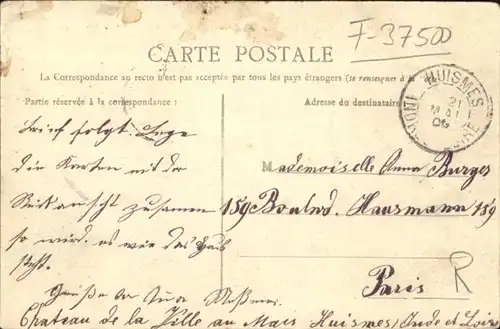 F-37500
CARTE POSTALE
La Correspondance au recto n'est pas acceptée par tous les pays étrangers (se renseigner à la
Partie réservée à la correspondance :
Adresse du destinataire
HUISMES
INDRE ET LOIRE
21
MAI
06
Brief folgt. Lege
die Karten mit der
zusammen
so wird es wie das Haus
steht.
Grüße
Mademoiselle Anna Burger
159 Boulvd. Hausmann 159
Paris
R
Chateau de la Ville au Mais Huismes / Inde et Loire